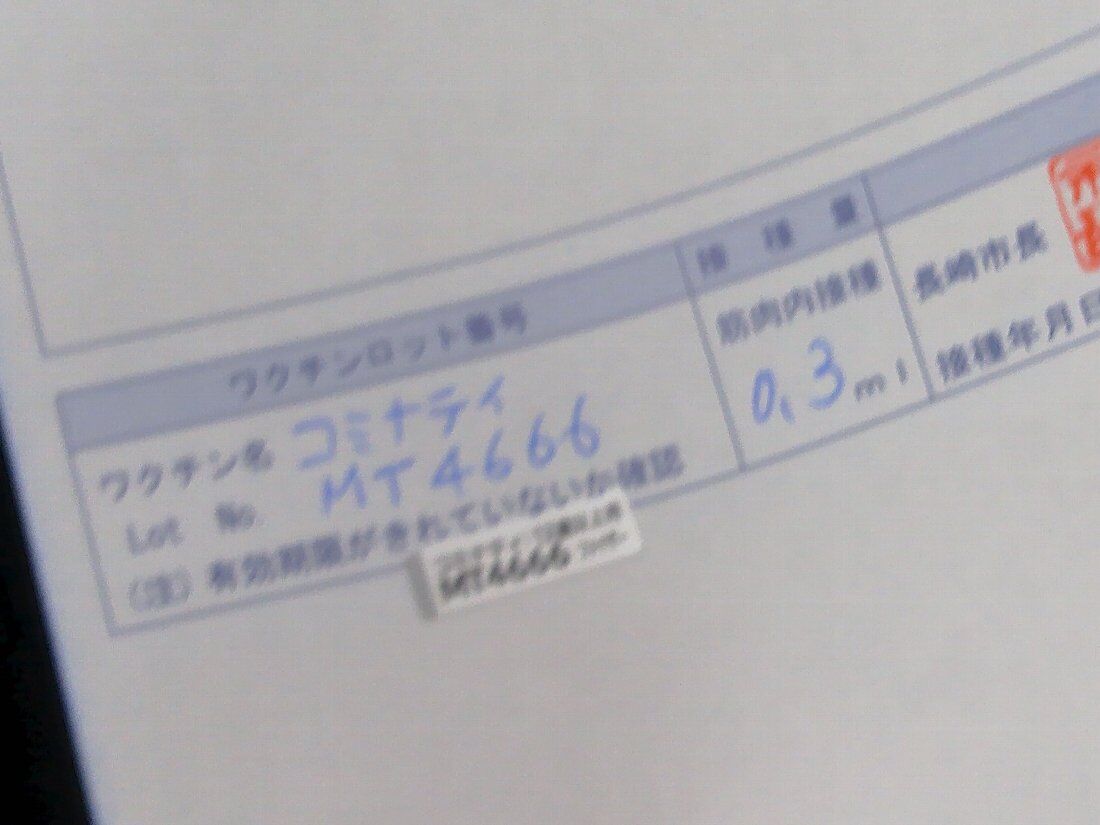 ワクチンロット番号
接種量
ワクチン名 コミナティ
Lot No. MT4666
(注)有効期限がきれていないか確認
MT4666
筋肉内接種
0.3ml
長崎市長
接種年月日